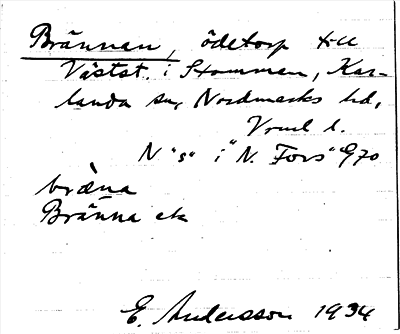 Brännan, ödetorp till
Västst. i Stommen, Kar-
landa sn, Nordmarks hd,
Vrml l.
N "s" i "N. Fors" G70
bräna
Bränna ek
E. Andersson 1934